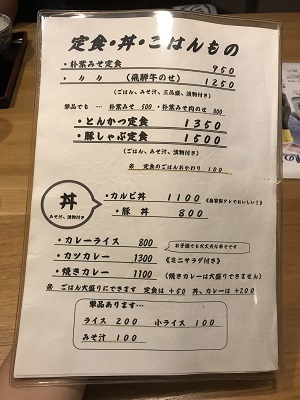 定食・丼・ごはんもの
・朴葉みそ定食 950
・〃 〃 (飛騨牛のせ) 1250
(ごはん、みそ汁、三品盛、漬物付き)
単品でも … 朴葉みそ 500 ・朴葉みそ肉のせ 800
・とんかつ定食 1350
・豚しゃぶ定食 1500
(ごはん、みそ汁、漬物付き)
※ 定食のごはんおかわり 100
丼
みそ汁、漬物付き
・カルビ丼 1100 《自家製タレでおいしい!》
・豚 丼 800
・カレーライス 800 お子様でも大丈夫な辛さです
・カツカレー 1300 《ミニサラダ付き》
・焼きカレー 1100 (焼きカレーは大盛りできません)
※ ごはん大盛りにできます 定食は +50 丼、カレーは +200
単品あります…
ライス 200 小ライス 100
みそ汁 100